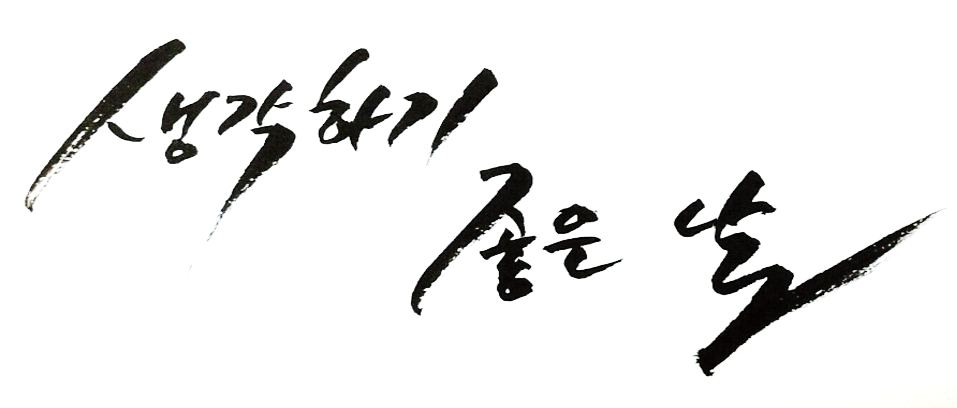 생각하기
좋은 날